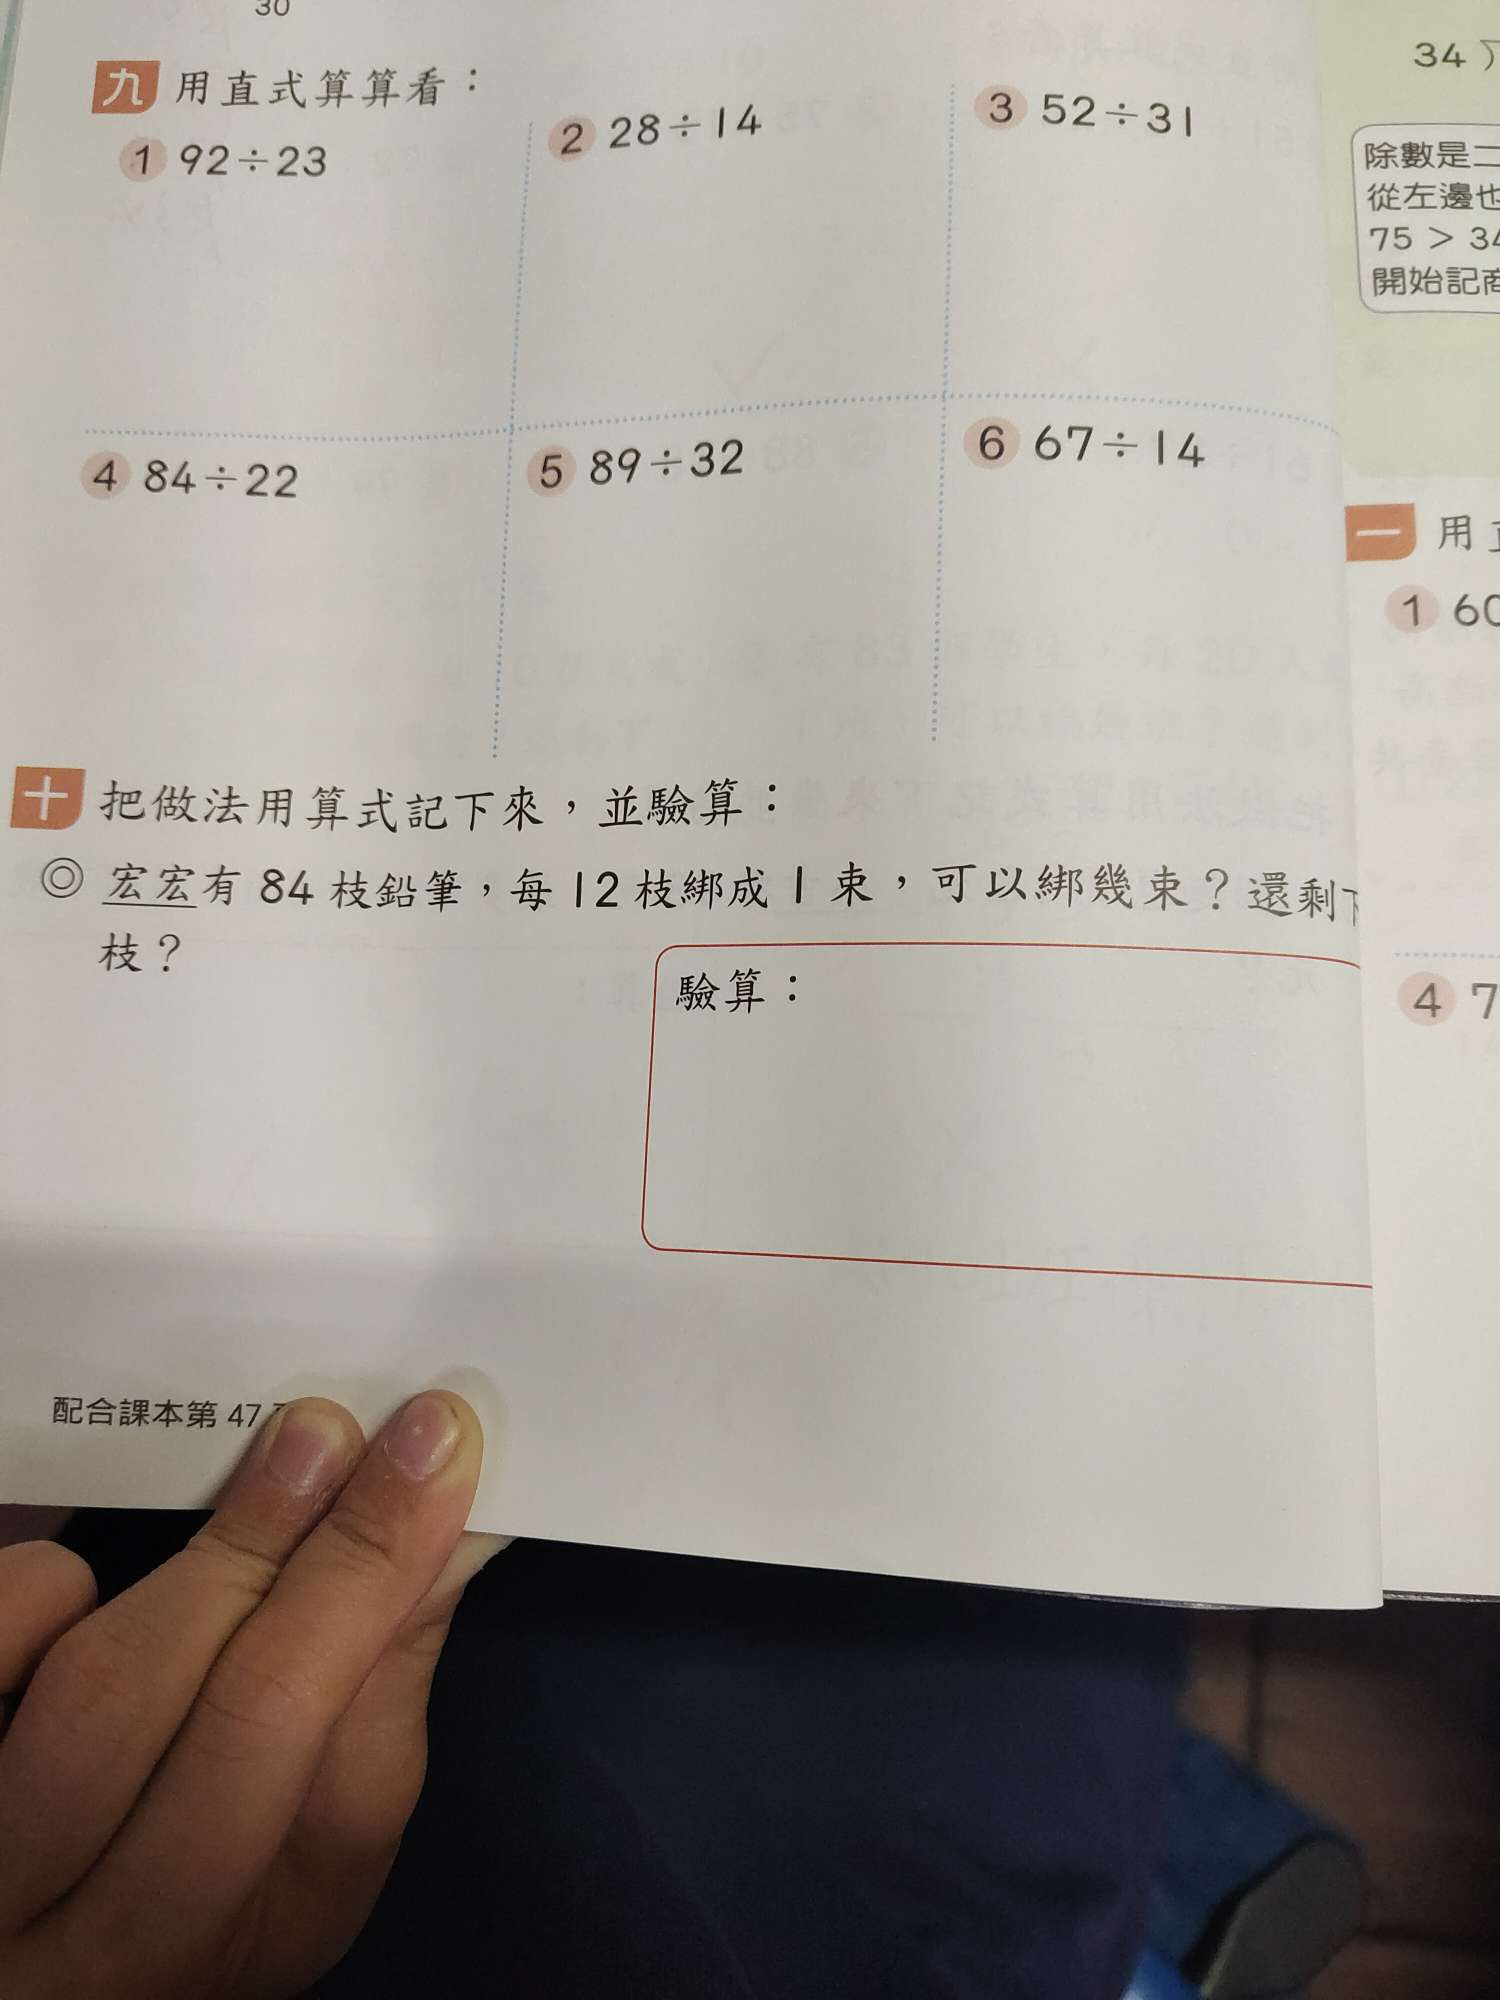 30
九 用直式算算看：
1 92÷23
2 28÷14
3 52÷31
4 84÷22
5 89÷32
6 67÷14
十 把做法用算式記下來，並驗算：
◎ 宏宏有 84 枝鉛筆，每 12 枝綁成 1 束，可以綁幾束？還剩下
枝？
驗算：
配合課本第 47
34
除數是二
從左邊也
75 > 34
開始記商
一 用直
1 60
4 7